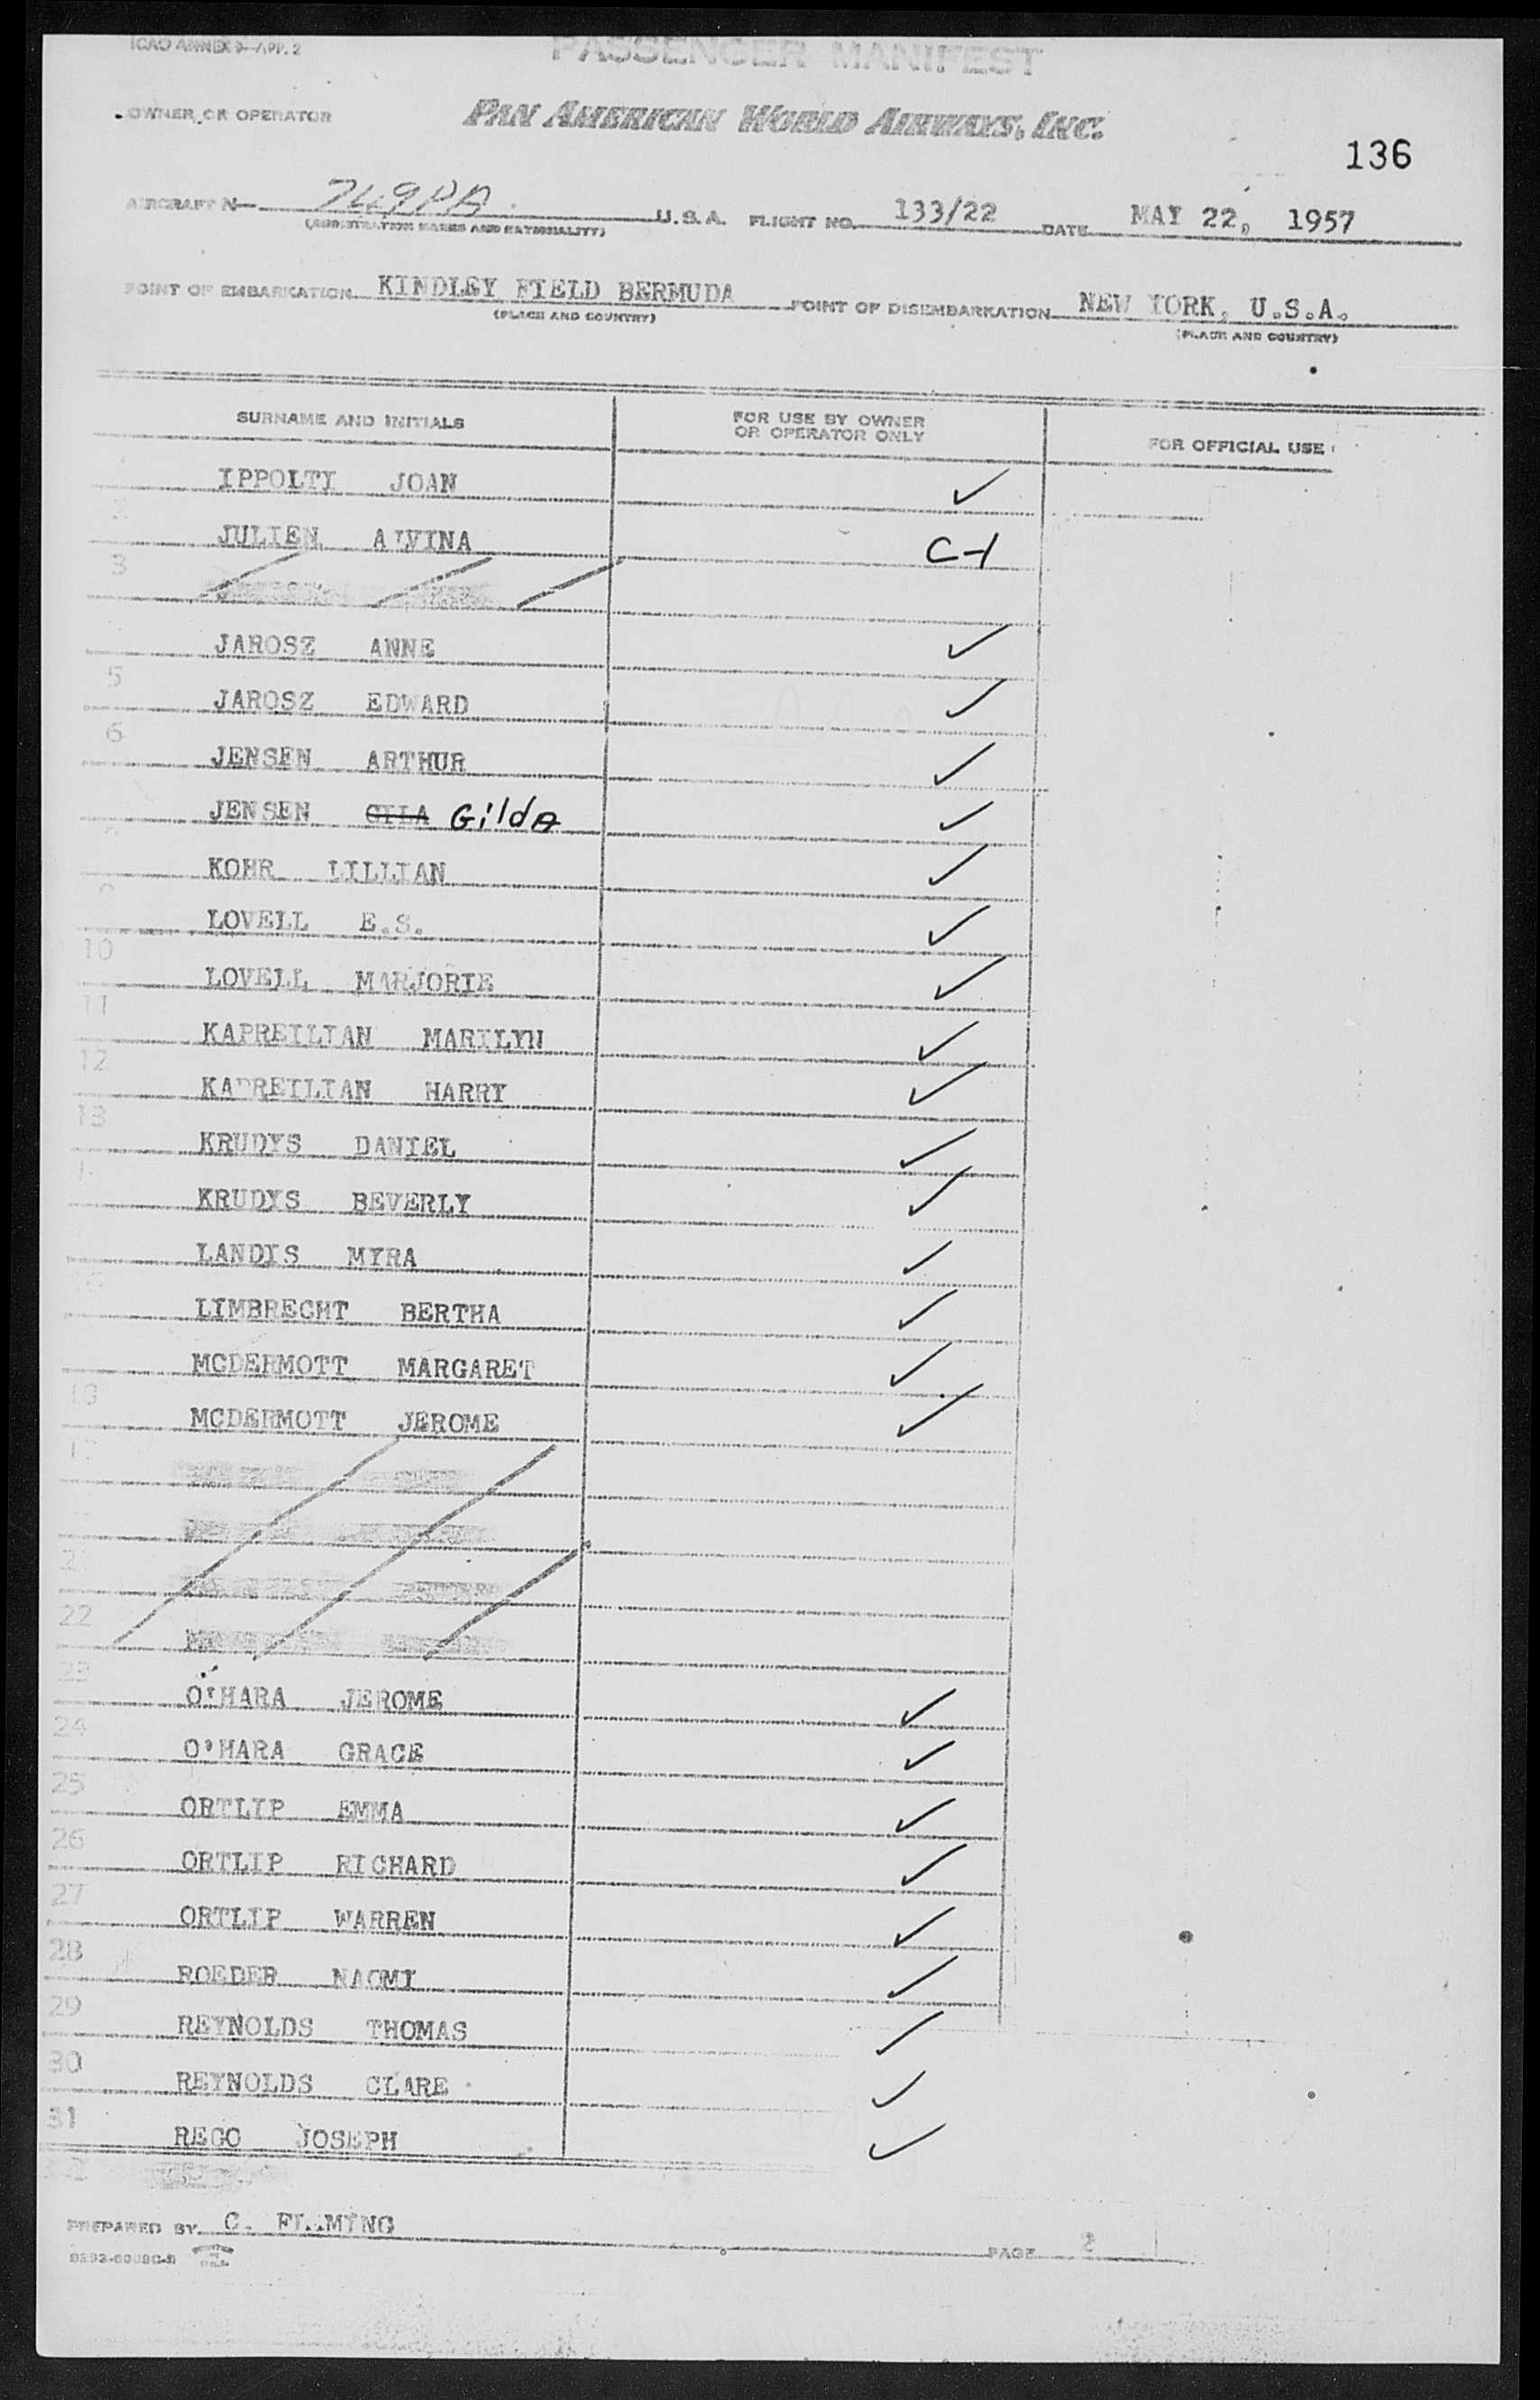 ICAO ANNEX 9-APP. 2
PASSENGER MANIFEST
OWNER OR OPERATOR PAN AMERICAN WORLD AIRWAYS, INC.
136
AIRCRAFT N- 749PA U.S.A. FLIGHT NO. 133/22 DATE MAY 22, 1957
(REGISTRATION MARKS AND NATIONALITY)
POINT OF EMBARKATION KINDLEY FIELD BERMUDA POINT OF DISEMBARKATION NEW YORK, U.S.A.
(PLACE AND COUNTRY) (PLACE AND COUNTRY)
SURNAME AND INITIALS FOR USE BY OWNER OR OPERATOR ONLY FOR OFFICIAL USE
IPPOLTY JOAN ✓
JULIEN ALVINA C-1
3
JAROSZ ANNE ✓
5 JAROSZ EDWARD ✓
6 JENSEN ARTHUR ✓
JENSEN GILA Gilda ✓
KOHR LILLIAN ✓
LOVELL E.S. ✓
10 LOVELL MARJORIE ✓
11 KAPREILIAN MARILYN ✓
12 KAPREILIAN HARRY ✓
13 KRUDYS DANIEL ✓
KRUDYS BEVERLY ✓
LANDIS MYRA ✓
LIMBRECHT BERTHA ✓
MCDERMOTT MARGARET ✓
18 MCDERMOTT JEROME ✓
22
23 O'HARA JEROME ✓
24 O'HARA GRACE ✓
25 ORTLIP EMMA ✓
26 ORTLIP RICHARD ✓
27 ORTLIP WARREN ✓
28 ROEDER NAOMI ✓
29 REYNOLDS THOMAS ✓
30 REYNOLDS CLARE ✓
31 REGO JOSEPH ✓
PREPARED BY C. FLEMING PAGE 2